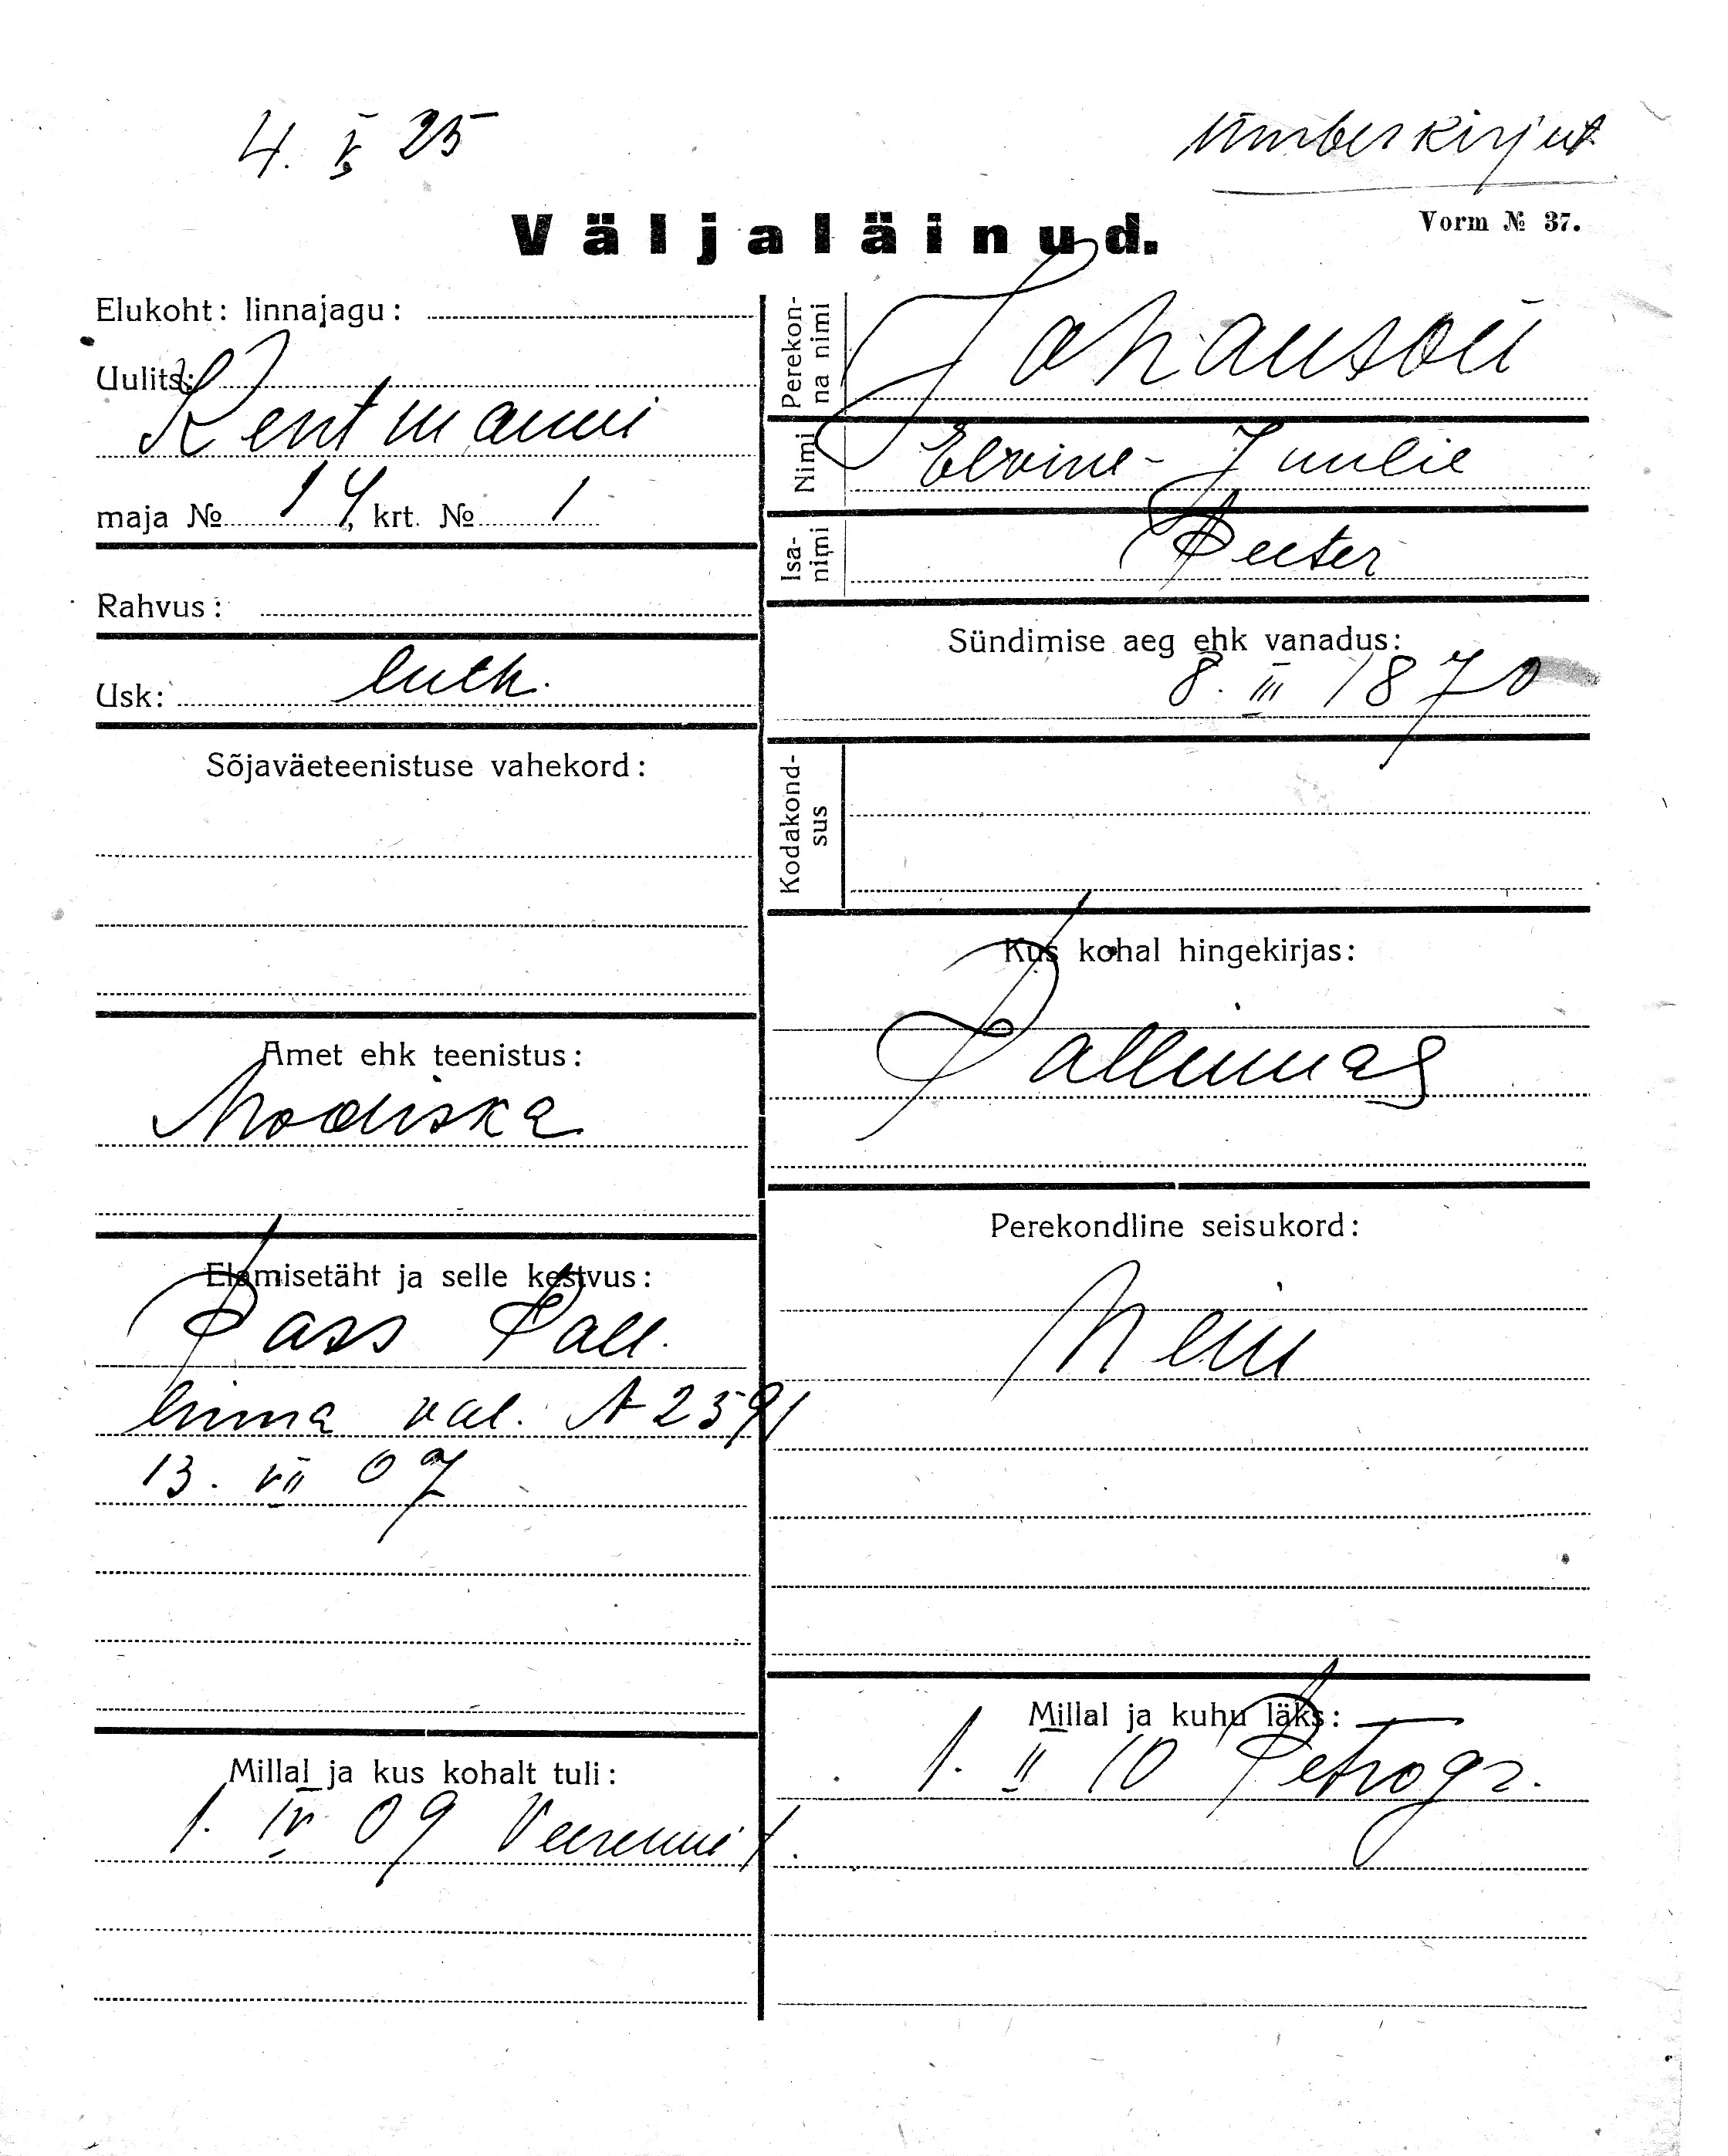 4. V 25
Ümberkirjut
Väljaläinud.
Vorm № 37.
Elukoht: linnajagu:
Uulits:
Kentmanni
maja № 14, krt. № 1
Rahvus:
Usk: luth.
Sõjaväeteenistuse vahekord:
Amet ehk teenistus:
Modiska
Elamisetäht ja selle kestvus:
Pass Pall.
linna val. A 2591
13. VII 07
Millal ja kus kohalt tuli:
1. IV 09 Veerenni t.
Perekonna nimi
Johanson
Nimi
Elvine-Juulie
Isanimi
Peeter
Sündimise aeg ehk vanadus:
8. III 1870
Kodakondsus
Kus kohal hingekirjas:
Pallinnas
Perekondline seisukord:
Neiu
Millal ja kuhu läks:
1. II 10 Petrogr.